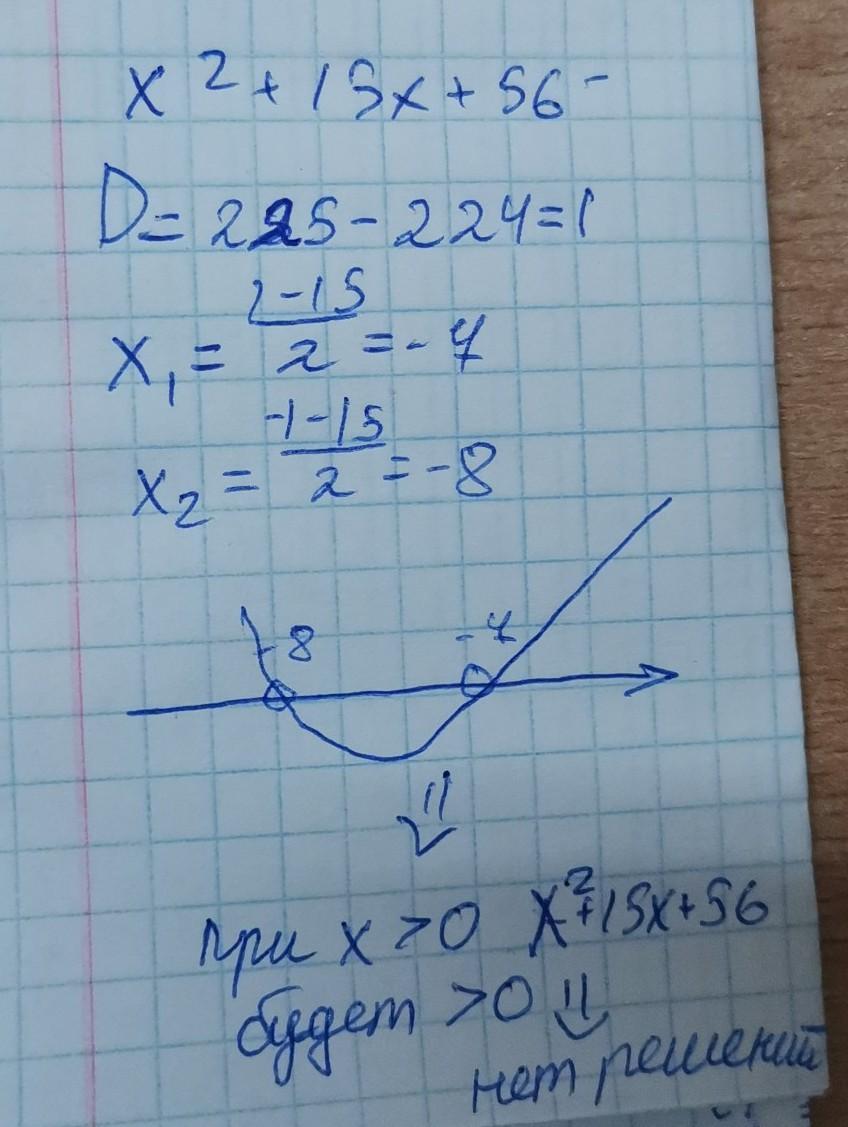 x² + 15x + 56 -
D = 225 - 224 = 1
x₁ = (1-15)/2 = -7
x₂ = (-1-15)/2 = -8
-8 -7
при x > 0 x²+15x+56
будет > 0 ⇓
нет решений